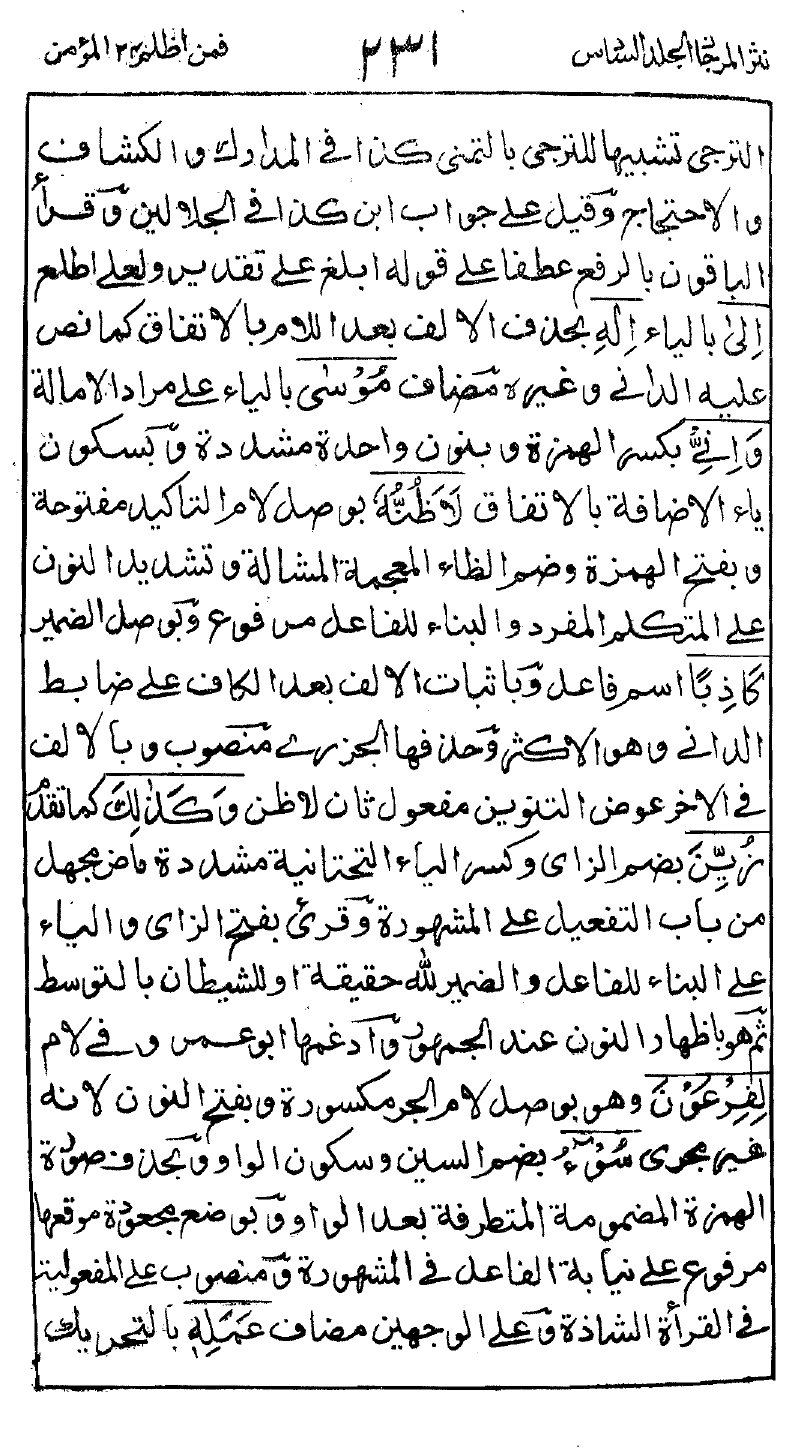 نثر المرجان الجلد السادس ٢٣١ فمن اظلم ٢٤ المؤمن
الترجى تشبيها للترجى بالتمنى كذا فى المدارك و الكشاف
و الاحتجاج وقيل على جواب ابن كذا فى الجلالين و قرأ
الباقون بالرفع عطفا على قوله ابلغ على تقدير ولعلى اطلع
اِلىٰ بالياء اِلٰهِ بحذف الالف بعد اللام بالاتفاق كما نص
عليه الدانى و غيره مضاف مُوْسٰى بالياء على مراد الامالة
وَاِنِّىْ بكسر الهمزة و بنون واحدة مشددة و بسكون
ياء الاضافة بالاتفاق لَاَظُنُّهٗ بوصل لام التاكيد مفتوحة
و بفتح الهمزة وضم الظاء المعجمة المشالة و تشديد النون
على المتكلم المفرد و البناء للفاعل مرفوع و بوصل الضمير
كَاذِبًا اسم فاعل و باثبات الالف بعد الكاف على ضابط
الدانى و هو الاكثر وحذفها الجزرى منصوب و بالالف
فى الاخر عوض التنوين مفعول ثان لاظن وَكَذٰلِكَ كما تقدم
زُيِّنَ بضم الزاى و كسر الياء التحتانية مشددة ماض مجهل
من باب التفعيل على المشهورة و قرئ بفتح الزاى و الياء
على البناء للفاعل و الضمير لله حقيقة او للشيطان بالتوسط
ثم هو باظهار النون عند الجمهور و ادغمها ابو عمرو فى لام
لِفِرْعَوْنَ وهو بوصل لام الجر مكسورة و بفتح النون لانه
غير مجرى سُوْٓءُ بضم السين و سكون الواو و بحذف صورة
الهمزة المضمومة المتطرفة بعد الواو و بوضع مجعودة موقعها
مرفوع على نيابة الفاعل فى المشهورة و منصوب على المفعولية
فى القرأة الشاذة و على الوجهين مضاف عَمَلِهٖ بالتحريك